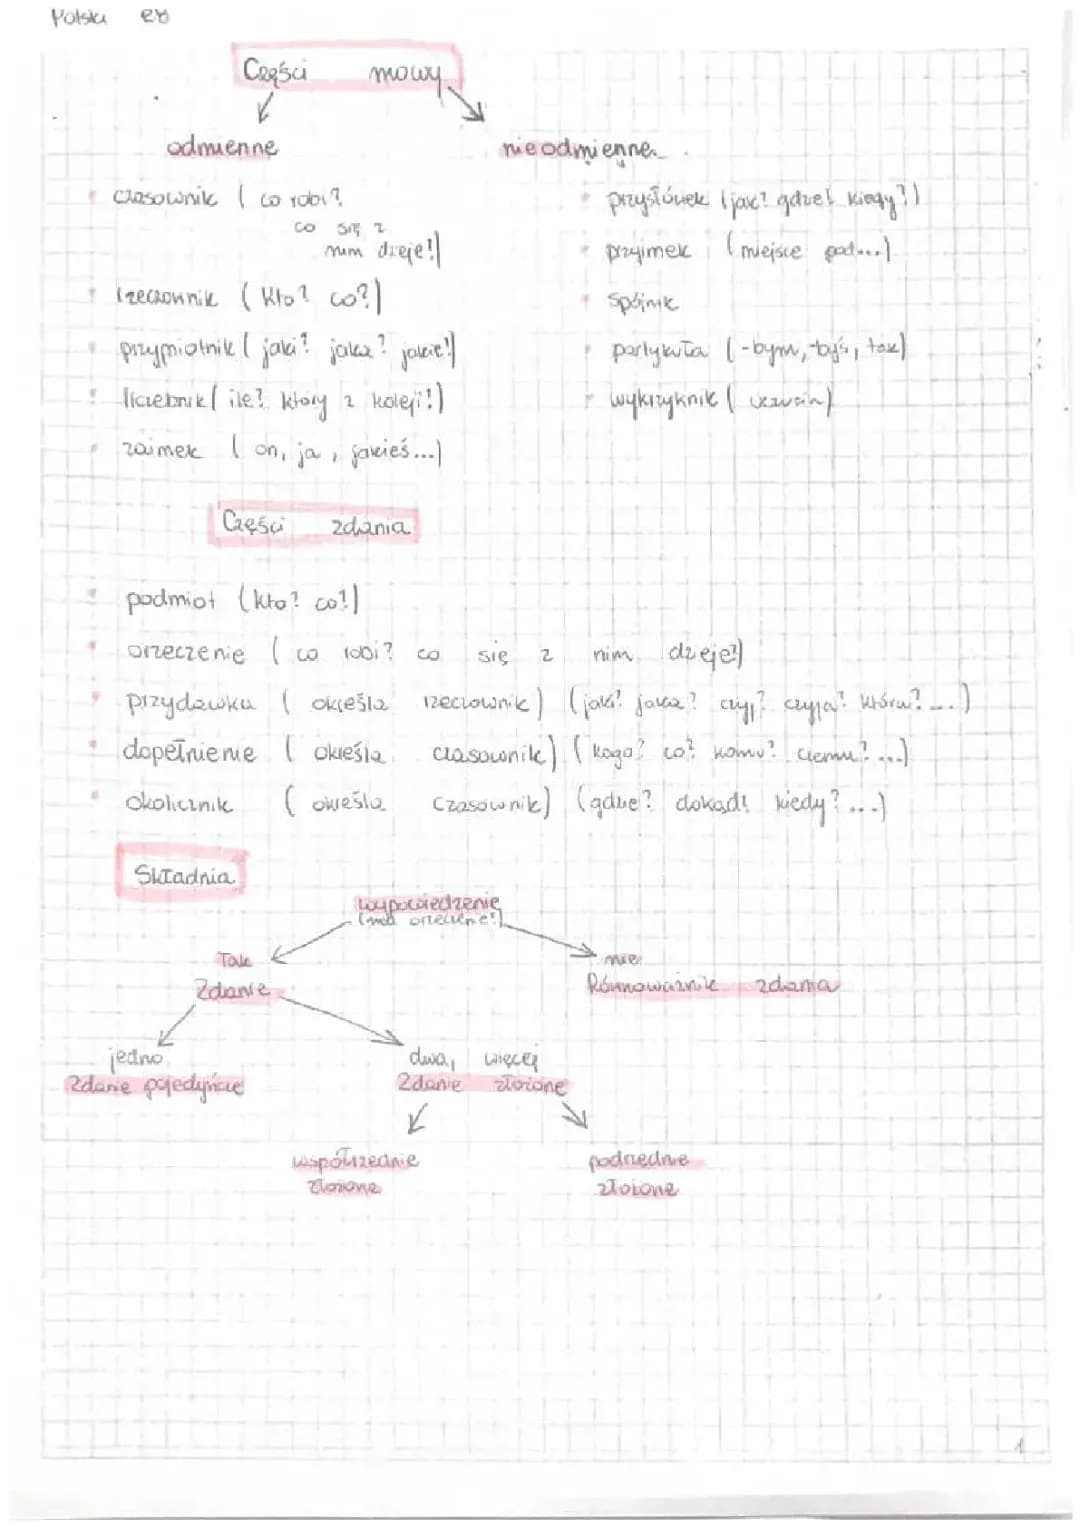 Polski e8
Części mowy
odmienne
nieodmienne
czasownik ( co robi?
co się z
nim dzieje?)
rzeczownik ( kto? co?)
przymiotnik ( jaki? jaka? jakie?)
liczebnik ( ile? który z koleji?)
zaimek ( on, ja, jakieś...)
przysłówek (jak? gdzie? kiedy?)
przyimek ( miejsce pod...)
spójnik
partykuła ( -bym, -byś, tak)
wykrzyknik ( uczucia)
Części zdania
podmiot (kto? co?)
orzeczenie ( co robi? co się z nim dzieje?)
przydawka ( określa rzeczownik) (jaki? jaka? czyj? czyja? która? ...)
dopełnienie ( określa czasownik) ( kogo? co? komu? czemu? ...)
okolicznik ( określa czasownik) (gdzie? dokąd? kiedy? ...)
Składnia
wypowiedzenie
(ma orzeczenie?)
Tak
Zdanie
nie
Równoważnik zdania
jedno
Zdanie pojedyńcze
dwa, więcej
Zdanie złożone
współrzędnie
złożone
podrzędnie
złożone
1